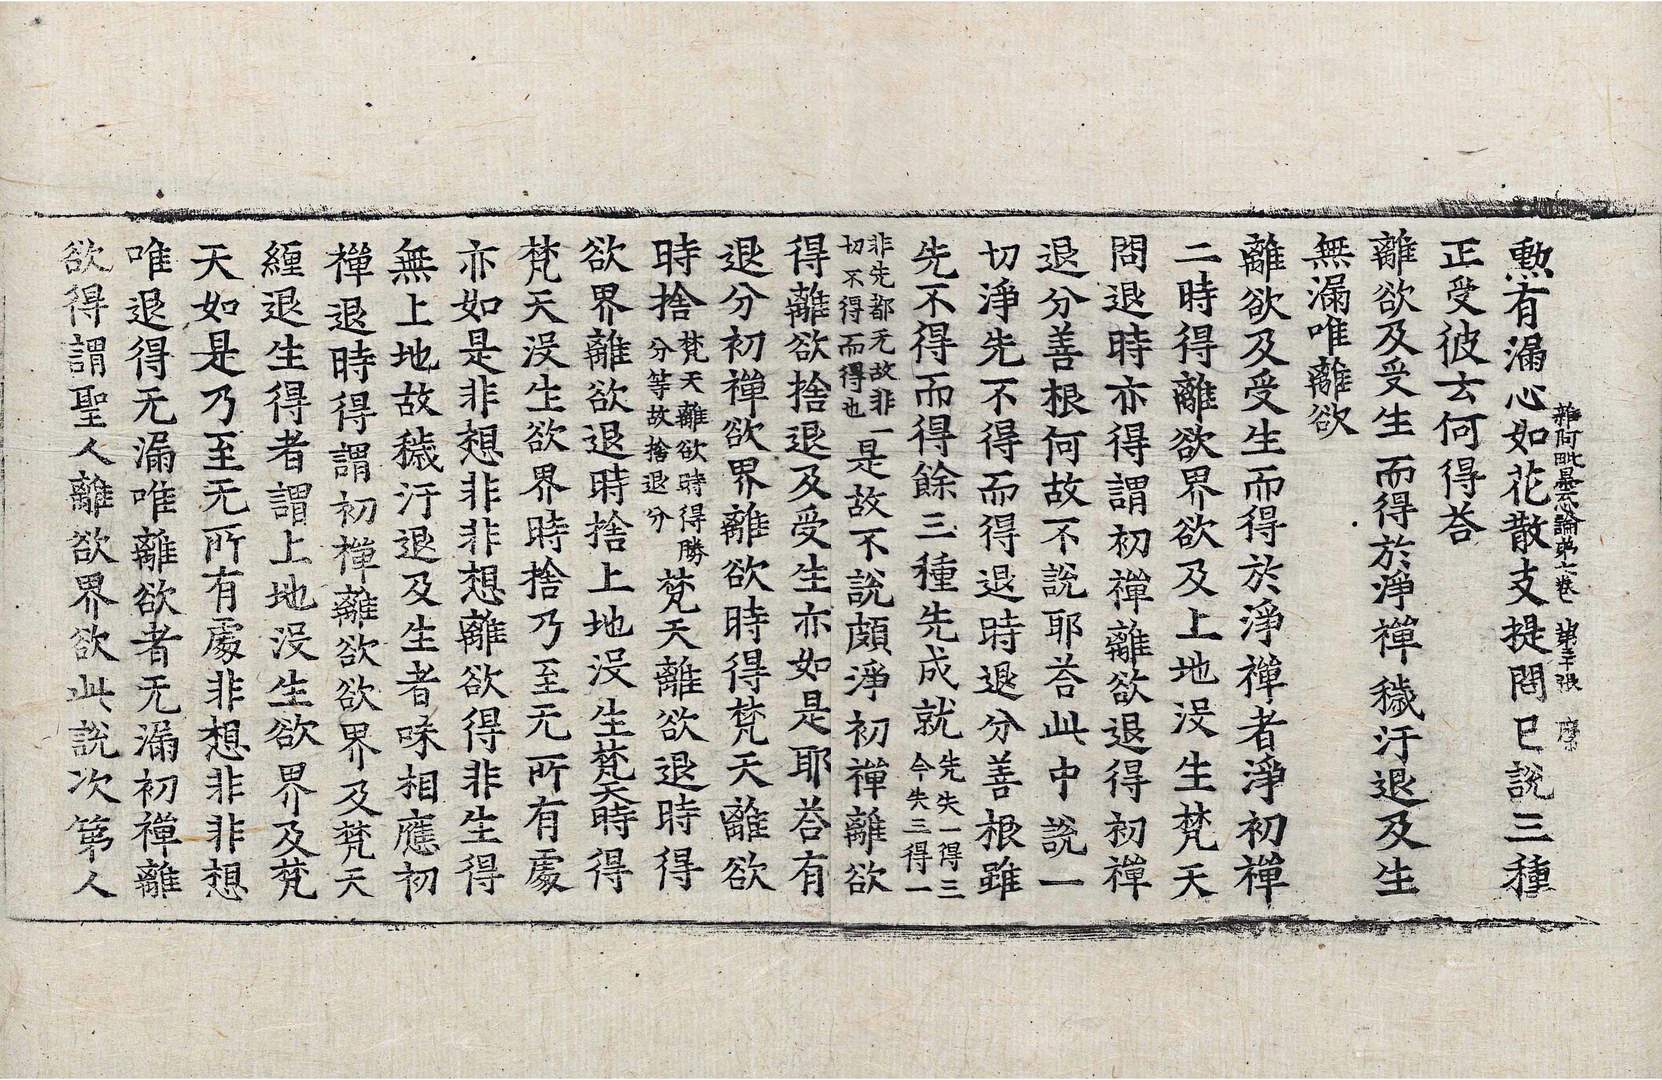 雜阿毗曇心論第七卷 第三十張 摩
勲有漏心如花散支提問已說三種
正受彼云何得荅
離欲及受生而得於淨禪穢汙退及生
無漏唯離欲
離欲及受生而得於淨禪者淨初禪
二時得離欲界欲及上地没生梵天
問退時亦得謂初禪離欲退得初禪
退分善根何故不說耶荅此中說一
切淨先不得而得退時退分善根雖
先不得而得餘三種先成就先失一得三今失三得一
非先都无故非一切不得而得也是故不說頗淨初禪離欲
得離欲捨退及受生亦如是耶荅有
退分初禪欲界離欲時得梵天離欲
時捨梵天離欲時得勝分等故捨退分梵天離欲退時得
欲界離欲退時捨上地没生梵天時得
梵天没生欲界時捨乃至无所有處
亦如是非想非非想離欲得非生得
無上地故穢汙退及生者味相應初
禪退時得謂初禪離欲欲界及梵天
纏退生得者謂上地没生欲界及梵
天如是乃至无所有處非想非非想
唯退得无漏唯離欲者无漏初禪離
欲得謂聖人離欲界欲此說次第人